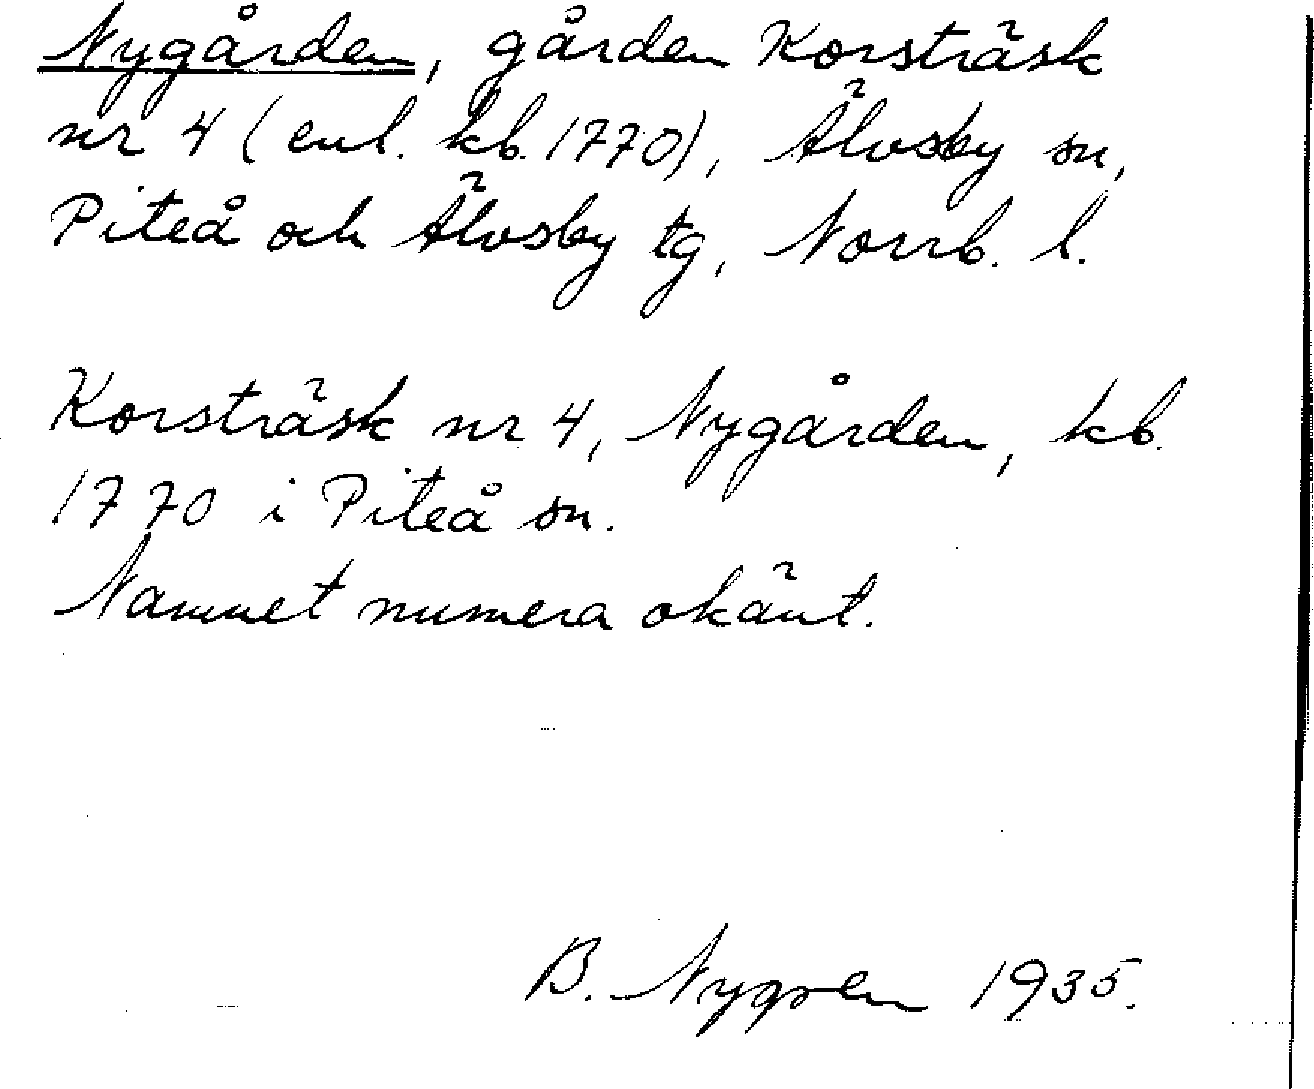 Nygården, gården Korsträsk
nr 4 (enl. kb. 1770), Älvsby sn,
Piteå och Älvsby tg, Norrb. l.
Korsträsk nr 4, Nygården, kb.
1770 i Piteå sn.
Namnet numera okänt.
B. Nygren 1935.